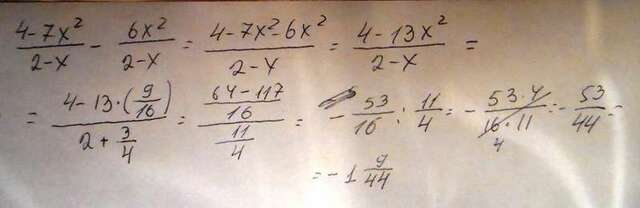 (4-7x²)/(2-x) - (6x²)/(2-x) = (4-7x²-6x²)/(2-x) = (4-13x²)/(2-x) =
= (4-13·(9/16))/(2+3/4) = ((64-117)/16)/(11/4) = -53/16 : 11/4 = -(53·4)/(16·11) 4 = -53/44 =
= -1 9/44